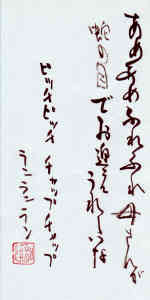 あめあめふれふれ母さんが
蛇の目でお迎えうれしいな
ピッチピッチ チャップチャップ
ランランラン